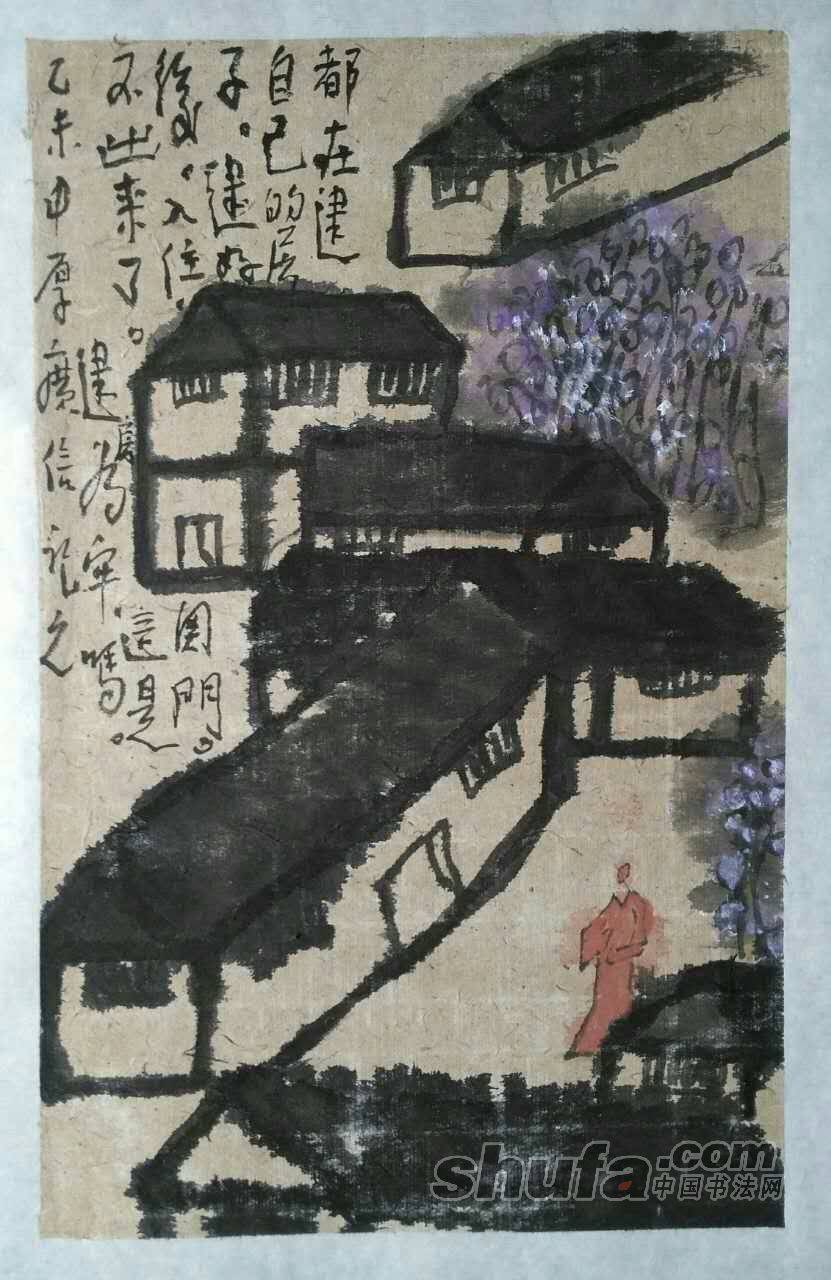 都在建
自己的房
子。建好
後。入住,
不出来了。
門。
這是
建房为牢。嗎。
乙未中厚廣信記之
shufa.com
中国书法网